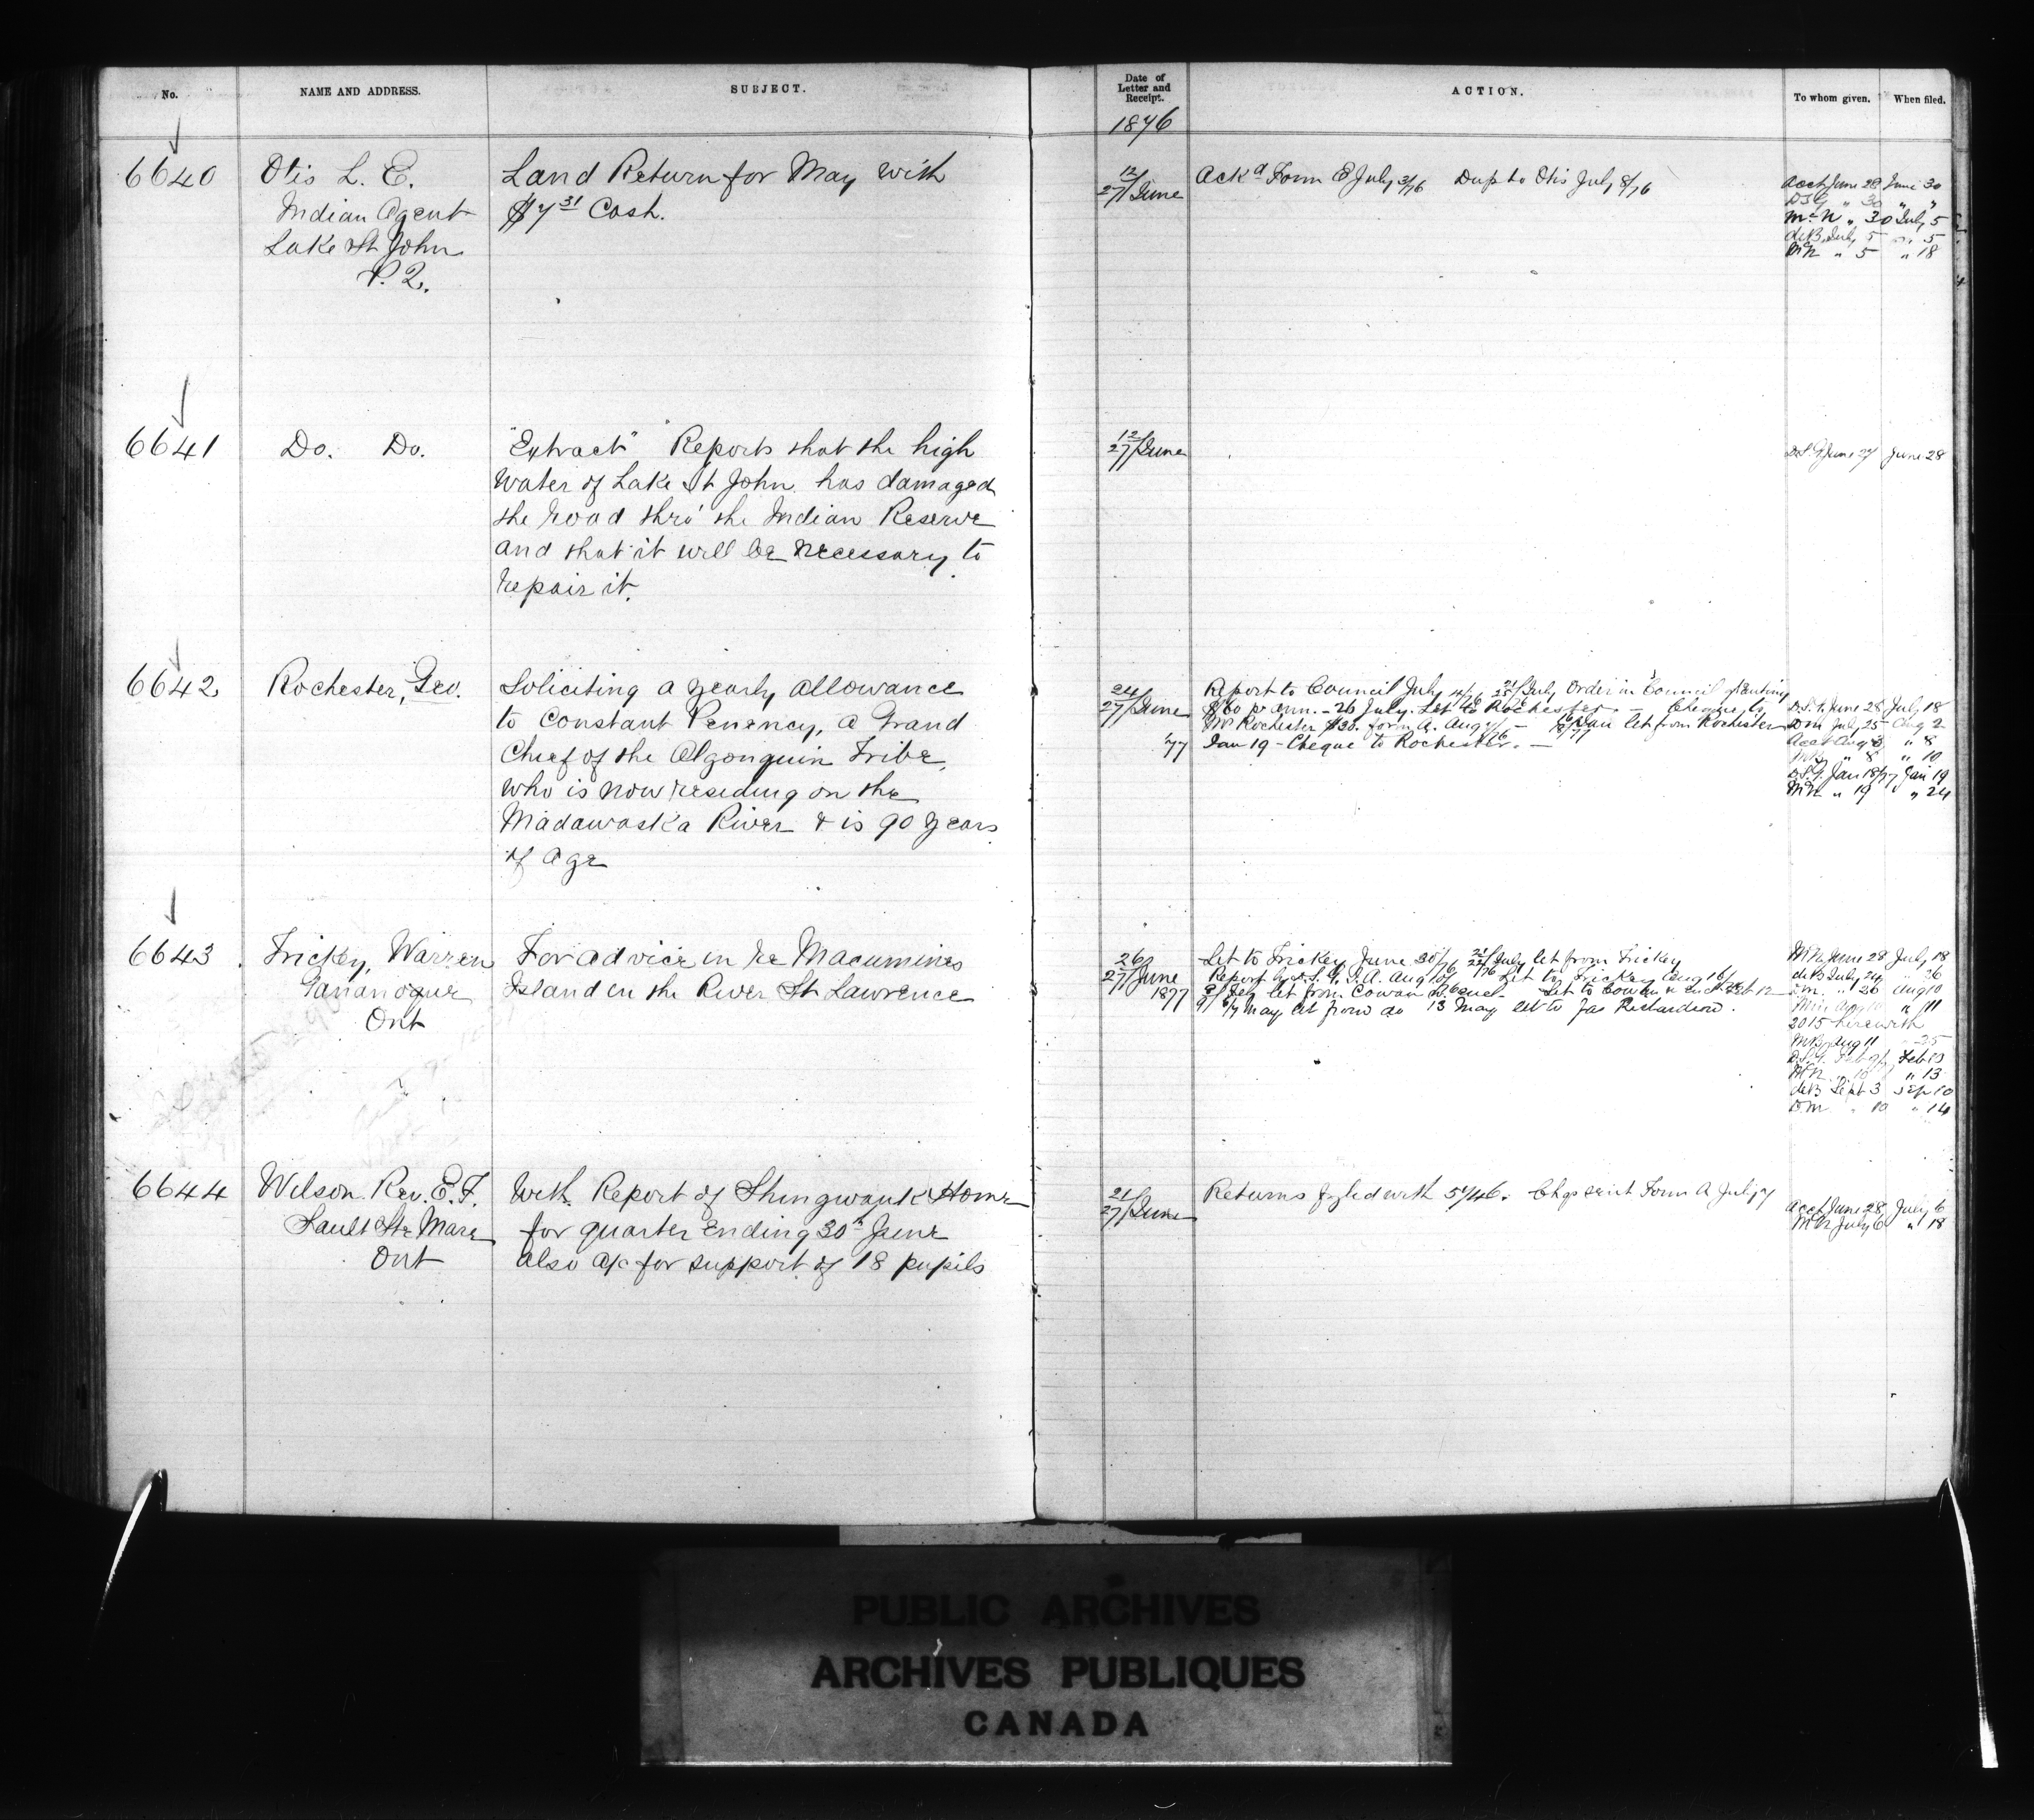 No.
NAME AND ADDRESS.
SUBJECT.
Date of
Letter and
Receipt.
ACTION.
To whom given.
When filed.
1876
6640
Otis L. E.
Indian Agent
Lake St John
P. Q.
Land Return for May with
$7 31 Cash.
12/
27/June
Ackd Form E July 3/76 Dup to Otis July 8/76
Acct June 28 June 30
D.S.G " 30 " "
McN " 30 July 5
deB July 5 " 5
McN " 5 " 18
6641
Do. Do.
"Extract" Reports that the high
water of Lake St John has damaged
the road thro' the Indian Reserve
and that it will be necessary to
repair it.
12/
27/June
D.S.G June 27 June 28
6642
Rochester, Geo.
Soliciting a yearly allowance
to Constant Penency, a Grand
Chief of the Algonquin Tribe,
who is now residing on the
Madawaska River & is 90 years
of age
24/
27/June
'77
Report to Council July 4/76 21/25 July Order in Council granting
$60 pr ann. - 26 July. Let to Rochester - Cheque to
Mr Rochester $30. form A. Aug - Jan let from Rochester
Jan 19 - Cheque to Rochester. -
D.S.G. June 28 July 18
D M July 25 Aug 2
Acct Aug 3 " 8
" 8 " 10
D.S.G. Jan 18/77 Jan 19
McN " 19 " 24
6643
Trickey, Warren
Gananoque
Ont
For advice in re Macumines
Island in the River St Lawrence
26/
27/June
1877
Let to Trickey June 30/76 July let from Trickey
Report by D.S.G. I.A. Aug 10/76 Let to Trickey Aug 16/
let from Cowan Let to Cowan Feb 12
May let from do 13 May let to Jas Richardson.
McN June 28 July 18
deB July 24 " 26
D.M. " 26 Aug 10
Min Aug 10 " 11
2015 herewith
Aug 11 " 25
D.S.G. Feb 9/ Feb 10
McN " 10 " 13
deB Sept 3 Sep 10
D.M. " 10 " 14
6644
Wilson Rev. E. F.
Sault Ste Marie
Ont
With Report of Shingwauk Home
for quarter ending 30th June
also a/c for support of 18 pupils
21/
27/June
Returns fyled with 5746. Chqe sent Form A July 7
Acct June 28 July 6
McN July 6 " 18
PUBLIC ARCHIVES
ARCHIVES PUBLIQUES
CANADA